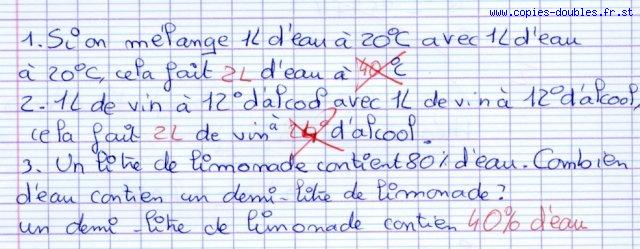 www.copies-doubles.fr.st
1. Si on mélange 1L d'eau à 20°C avec 1L d'eau
à 20°C, cela fait 2L d'eau à 40°C
2. 1L de vin à 12° d'alcool avec 1L de vin à 12° d'alcool,
cela fait 2L de vin à 24° d'alcool.
3. Un litre de limonade contient 80% d'eau. Combien
d'eau contien un demi-litre de limonade?
un demi-litre de limonade contien 40% d'eau